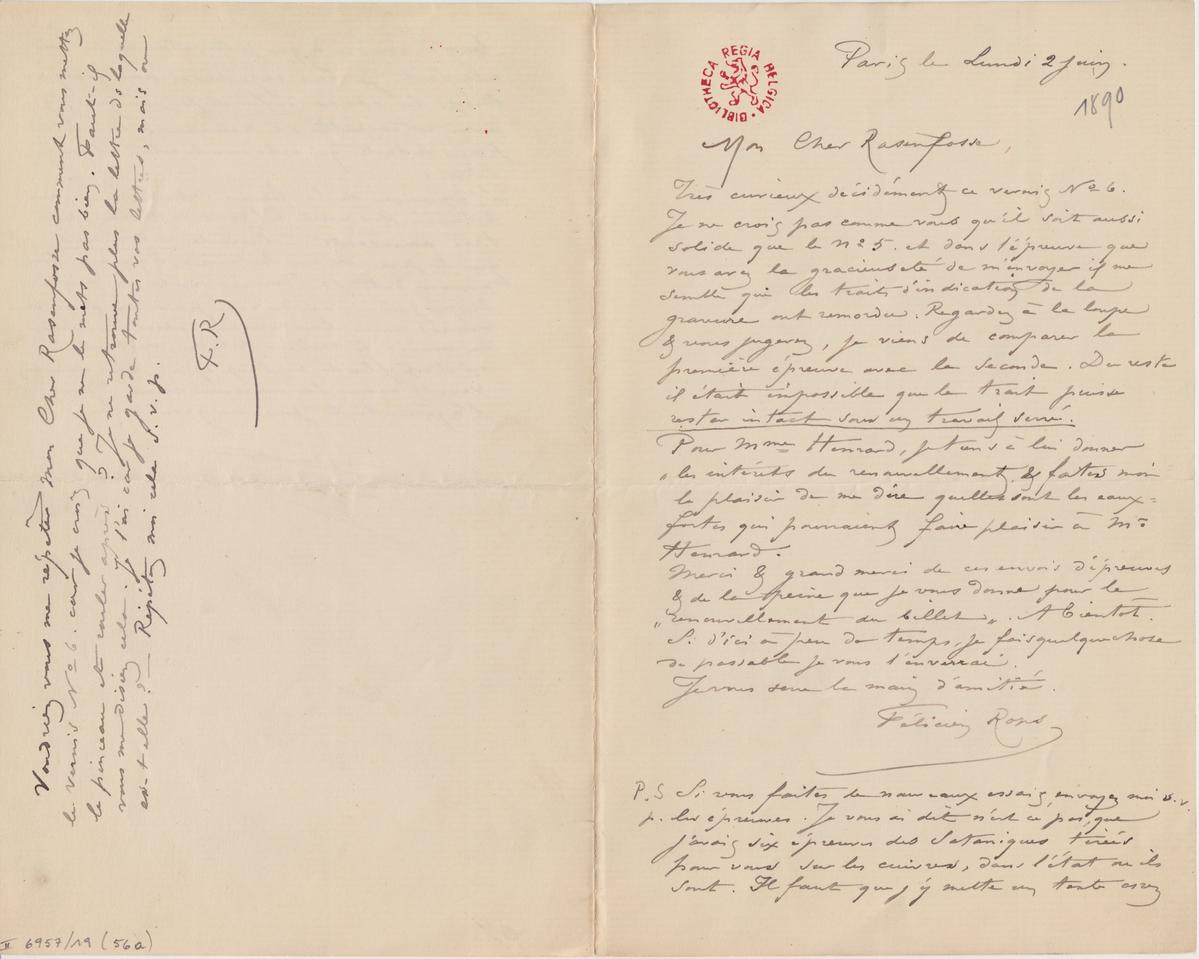 Paris le Lundi 2 Juin.
1890
BIBLIOTHECA REGIA BELGICA
Mon Cher Rasenfosse,
Très curieux décidément ce vernis No 6.
Je ne crois pas comme vous qu'il soit aussi
solide que le no 5. et dans l'épreuve que
vous avez la gracieuseté de m'envoyer il me
semble que les traits d'indication de la
gravure ont remordu. Regardez à la loupe
& vous jugerez, je viens de comparer la
première épreuve avec la seconde. Du reste
il était impossible que le trait puisse
rester intact sous un travail serré.
Pour Mme Henrard, je tiens à lui donner
"les intérêts du renouvellement & faites moi
le plaisir de me dire quelles sont les eaux=
fortes qui pourraient faire plaisir à Mr
Henrard.
Merci & grand merci de ces envois d'épreuves
& de la peine que je vous donne pour le
"renouvellement du billet". A Bientôt.
Si d'ici à peu de temps, je fais quelque chose
de passable je vous l'enverrai.
Je vous serre la main d'amitié.
Félicien Rops
P.S Si vous faites de nouveaux essais, envoyez moi s.v.
p. les épreuves. Je vous ai dit n'est ce pas, que
j'avais six épreuves des Sataniques tirées
pour vous sur les cuivres, dans l'état où ils
sont. Il faut que j'y mette un texte assez
Voudriez vous me répéter Mon Cher Rasenfosse comment vous mettez
le vernis No 6. car je crois que je ne le mets pas bien. Faut-il
le pinceau et rouler après? Je ne retrouve plus la lettre ds laquelle
vous me disiez cela: je l'ai car je garde toutes vos lettres, mais où
est-elle? — Répétez moi cela S. v. p.
F. R
II 6957/19 (56a)